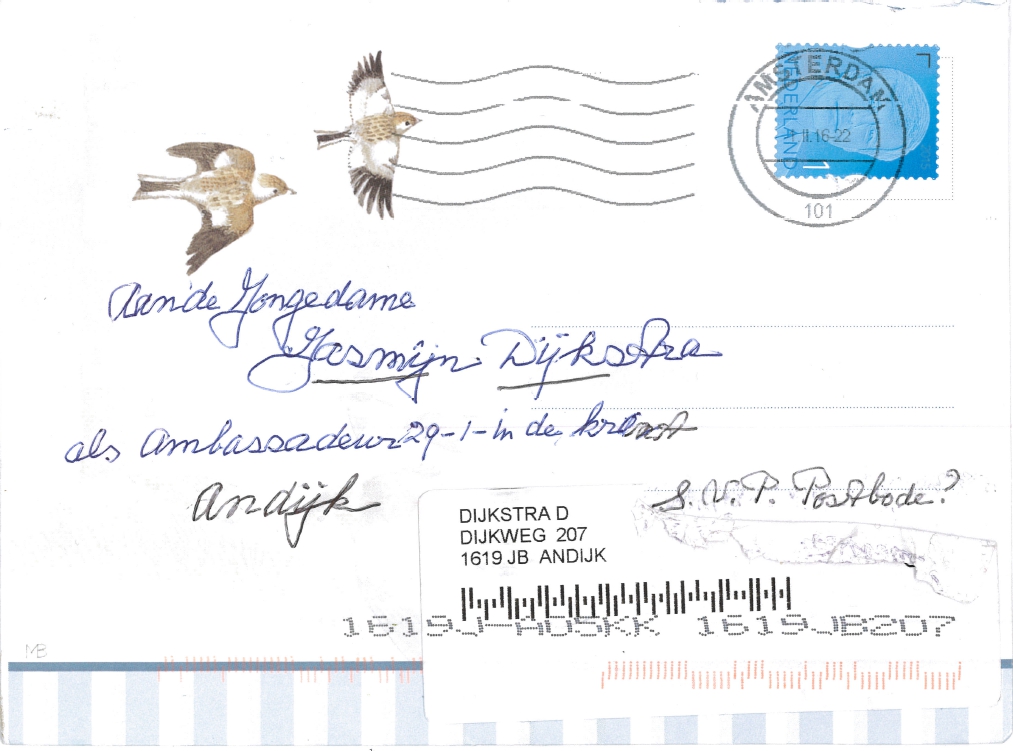 AMSTERDAM
NEDERLAND
II.16-22
1
101
Aan de Jongedame
Jasmijn Dijkstra
als Ambassadeur 29-1-in de krant
Andijk
S.V.P. Postbode?
DIJKSTRA D
DIJKWEG 207
1619 JB ANDIJK
1619JB207
MB